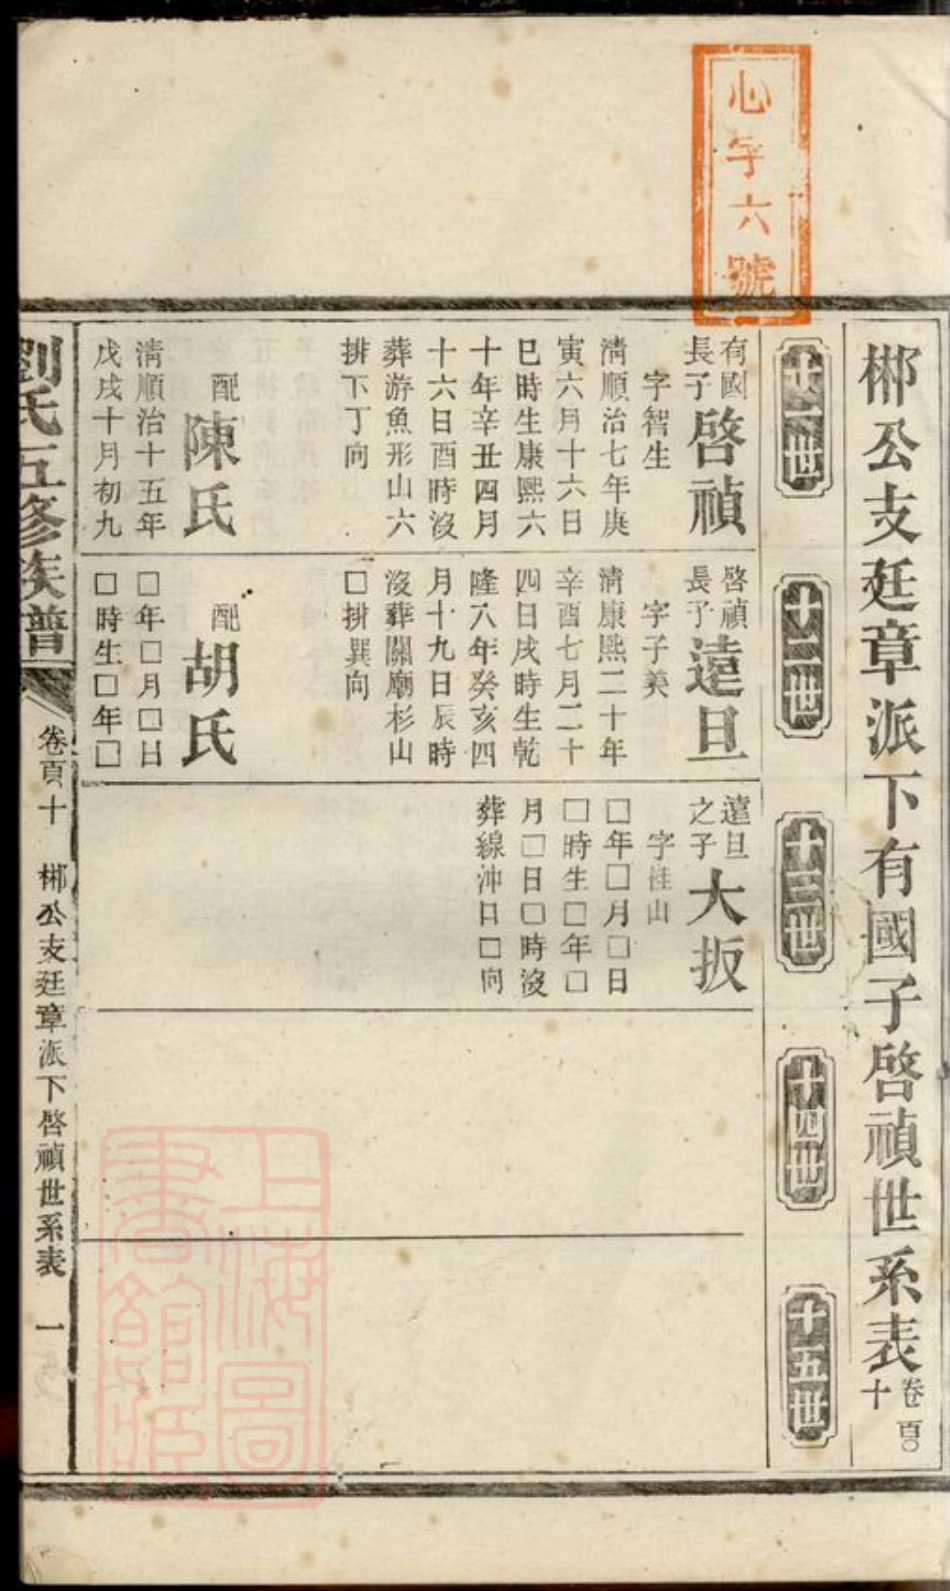 心字六號
郴公支廷章派下有國子啓禎世系表
卷百〇
十
十一世
十二世
十三世
十四世
十五世
有國
長子
啓禎
字智生
清順治七年庚
寅六月十六日
巳時生康熙六
十年辛丑四月
十六日酉時沒
葬游魚形山六
排下丁向
配
陳氏
清順治十五年
戊戌十月初九
啓禎
長子
遠旦
字子美
清康熙二十年
辛酉七月二十
四日戌時生乾
隆八年癸亥四
月十九日辰時
沒葬關廟杉山
□排巽向
配
胡氏
□年□月□日
□時生□年□
遠旦
之子
大扳
字桂山
□年□月□日
□時生□年□
月□日□時沒
葬線沖口□向
劉氏五修族譜
卷百十
郴公支廷章派下啓禎世系表
一
上海圖
書館藏